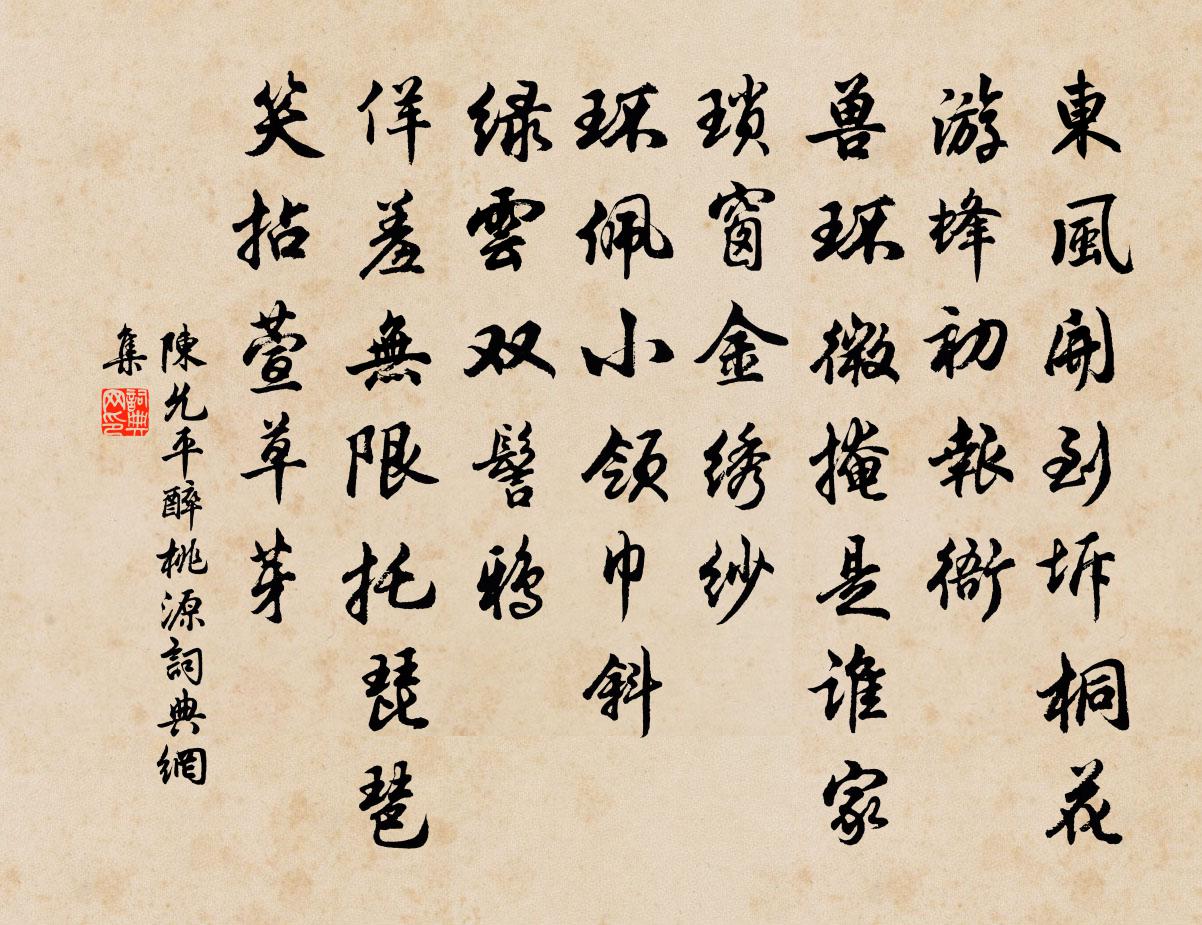 東風開到坼桐花
游蜂初報衙
兽环微掩是誰家
瑣窗金綉紗
环佩小領巾斜
緑雲双髻鴉
佯羞無限托琵琶
笑拈萱草芽
陳允平醉桃源詞典網
集
詞典网印